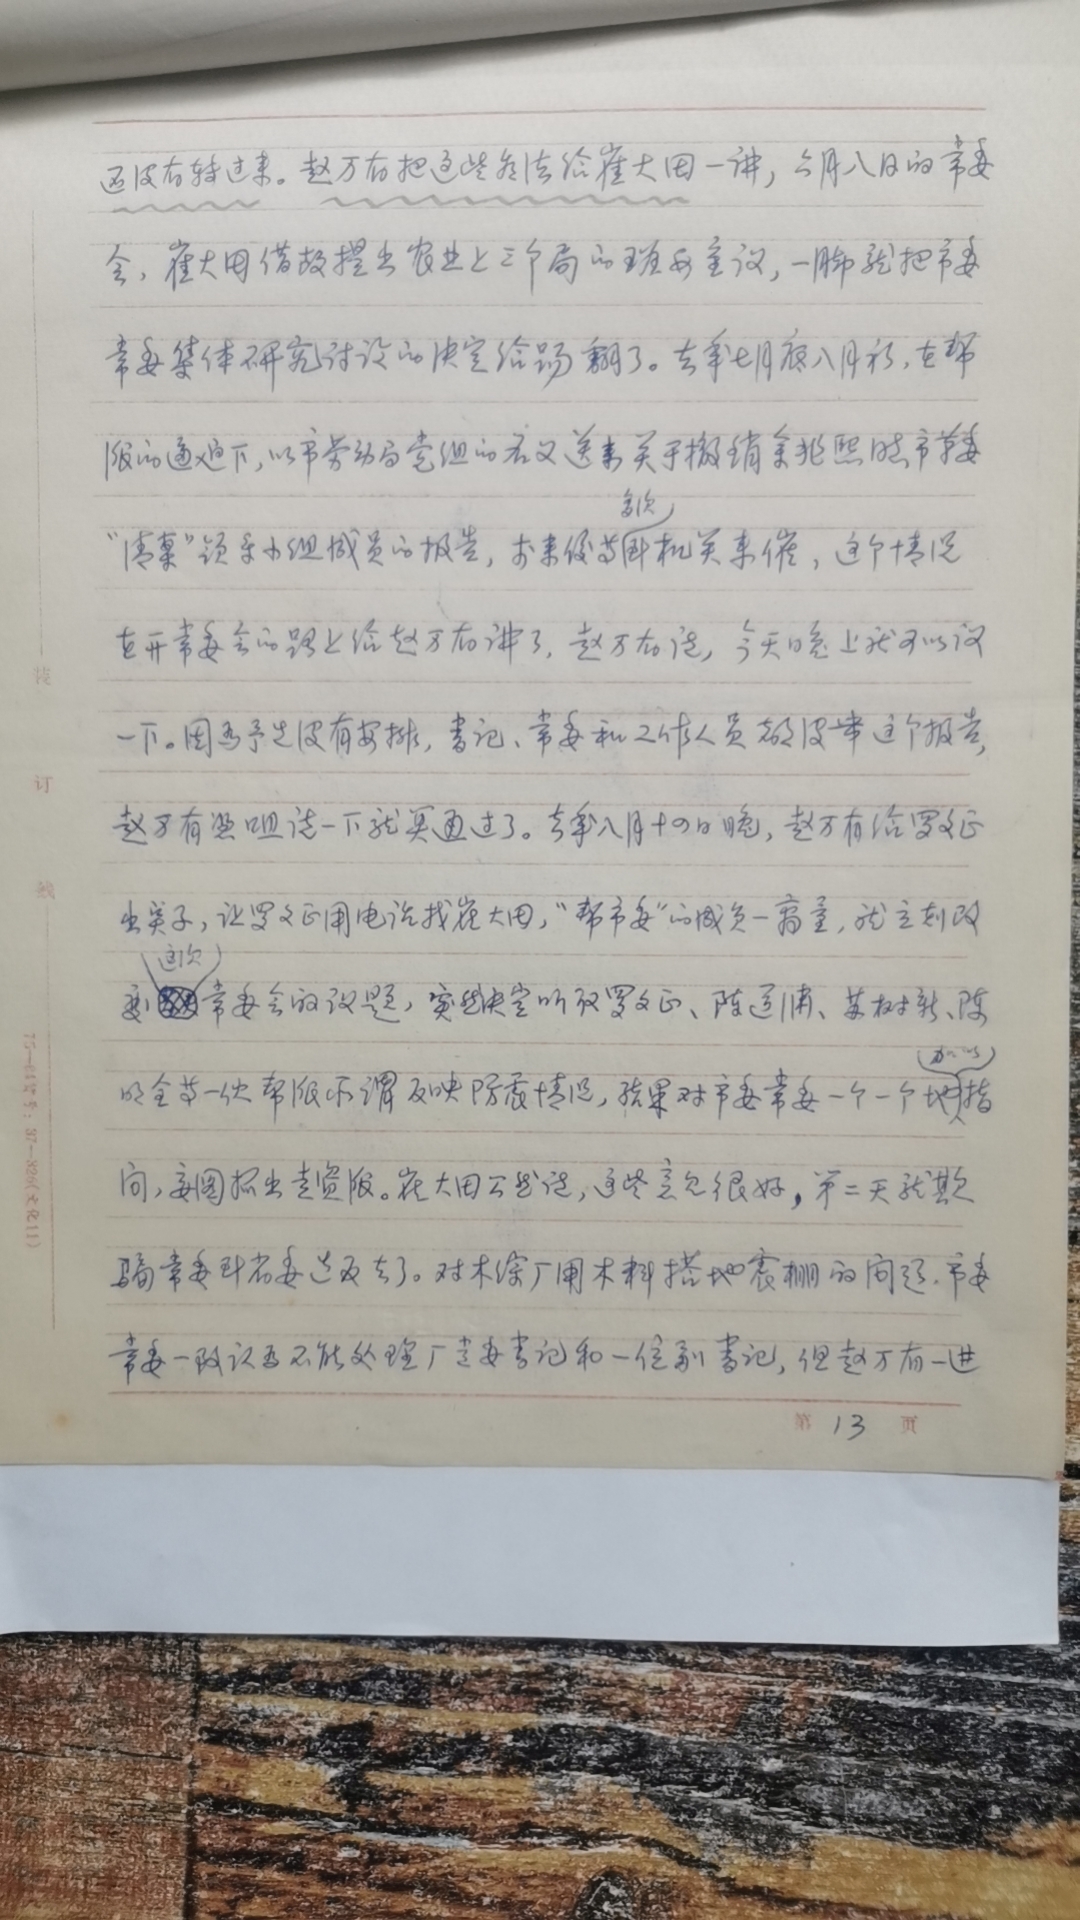 还没有转过来。赵万有把这些办法给崔大田一讲，六月八日的常委
会，崔大田借故提出农业上三个局的班子重议，一脚就把市委
常委集体研究讨论的决定给踢翻了。去年七月底八月初，在帮
派的通迫下，以市劳动局党组的名义送来关于撤销余兆熙同志市革委
“清案”领导小组成员的报告，
多次
机关来催，这个情况
在开常委会的路上给赵万有讲了，赵万有说，今天晚上就可以议
一下。因为予先没有安排，书记、常委和工作人员都没带这个报告，
赵万有照咀说一下就算通过了。去年八月十四日晚，赵万有给罗文正
出点子，让罗文正用电话找崔大田，“帮市委”的成员一商量，就立刻改
这次
变常委会的议题，突然决定听取罗文正、陈运浦、苏树新、陈
加以
明全等一伙帮派所谓反映防震情况，结果对市委常委一个一个地指
问，妄图抓出走资派。崔大田公然说，这些意见很好，第二天就欺
骗常委到省委造反去了。对木综厂用木料搭地震棚的问题，市委
常委一致认为不能处理厂党委书记和一位副书记，但赵万有一进
第 13 页
装
订
线